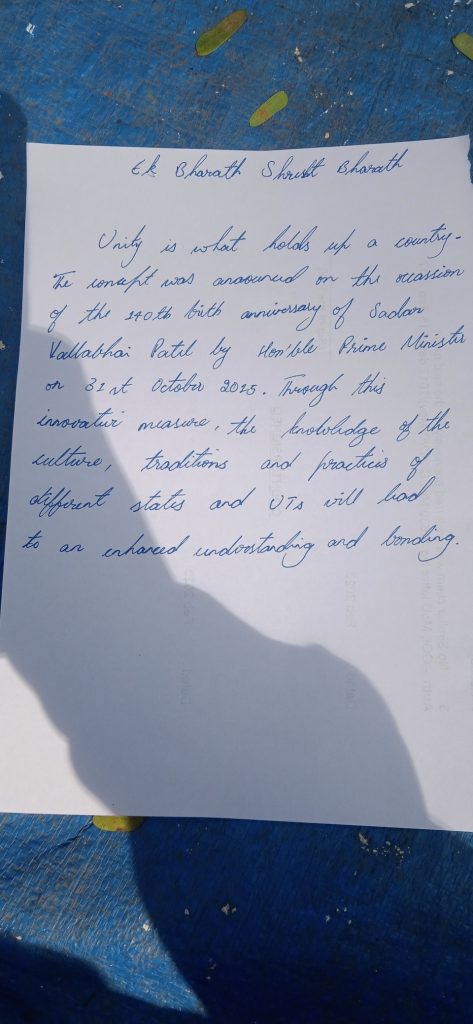 Ek Bharath Shrest Bharath
Unity is what holds up a country.
The concept was anaounced on the occassion
of the 140th birth anniversary of Sadar
Vallabhai Patel by Hon'ble Prime Minister
on 31st October 2015. Through this
innovative measure, the knolwledge of the
culture, traditions and practices of
different states and UTs will lead
to an enhanced understanding and bonding.